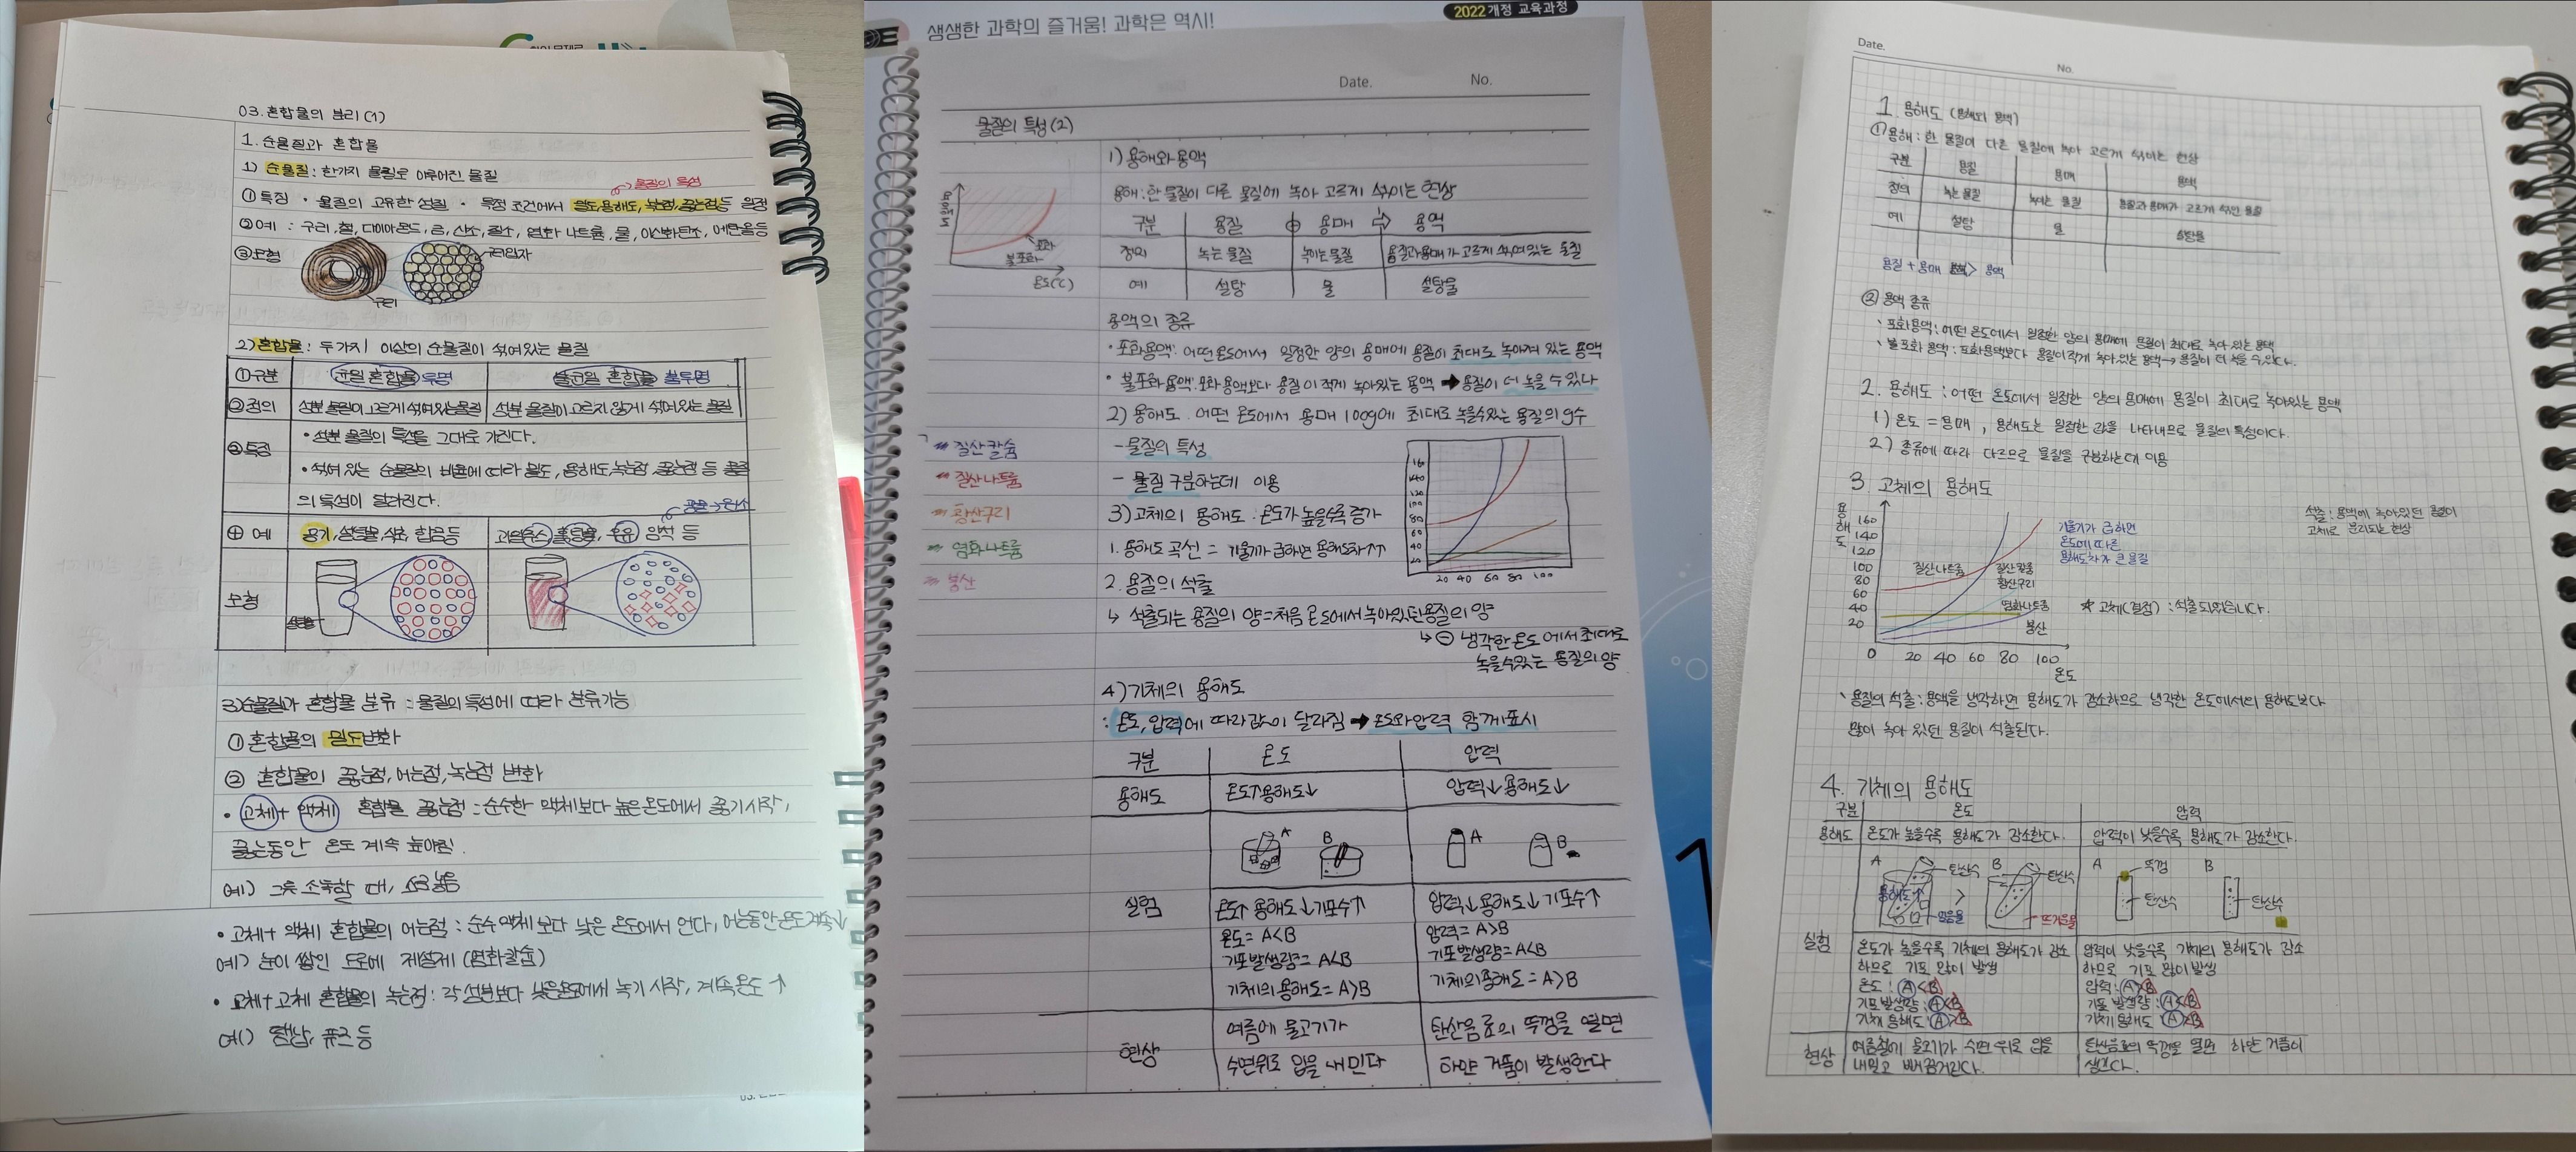 03. 혼합물의 분리(1)
1. 순물질과 혼합물
1) 순물질 : 한가지 물질로 이루어진 물질
→ 물질의 특성
① 특징 • 물질의 고유한 성질 • 특정 조건에서 밀도, 용해도, 녹는점, 끓는점등 일정
② 예 : 구리, 철, 다이아몬드, 금, 산소, 질소, 염화 나트륨, 물, 이산화탄소, 에탄올등
③ 모형
구리입자
구리
2) 혼합물 : 두가지 이상의 순물질이 섞여있는 물질
① 구분 균일 혼합물 투명 불균일 혼합물 불투명
② 정의 성분 물질이 고르게 섞여있는물질 성분 물질이 고르지 않게 섞여있는 물질
③ 특징 • 성분 물질의 특성을 그대로 가진다.
• 섞여 있는 순물질의 비율에 따라 밀도, 용해도, 녹는점, 끓는점 등 물질
의 특성이 달라진다.
④ 예 공기, 설탕물, 식초, 합금등 과일주스, 흙탕물, 우유, 암석 등
모형
설탕물
3) 순물질과 혼합물 분류 : 물질의 특성에 따라 분류가능
① 혼합물의 밀도변화
② 혼합물의 끓는점, 어는점, 녹는점 변화
• 고체 + 액체 혼합물 끓는점 : 순수한 액체보다 높은온도에서 끓기시작,
끓는동안 온도 계속 높아짐.
• 고체 + 액체 혼합물의 어는점 : 순수 액체보다 낮은 온도에서 언다, 어는동안온도계속↓
예) 눈이 쌓인 도로에 제설제 (염화칼슘)
• 고체+고체 혼합물의 녹는점 : 각 성분보다 낮은온도에서 녹기 시작, 계속온도 ↑
예) 땜납, 퓨즈 등
생생한 과학의 즐거움! 과학은 역시!
2022 개정 교육과정
Date. No.
물질의 특성(2)
1) 용해와용액
용해 : 한 물질이 다른 물질에 녹아 고르게 섞이는 현상
구분 용질 ⊕ 용매 ⇨ 용액
정의 녹는 물질 녹이는 물질 용질과용매가 고르게 섞여있는 물질
예 설탕 물 설탕물
포화
불포화
온도(℃)
용액의 종류
• 포화용액: 어떤온도에서 일정한 양의 용매에 용질이 최대로 녹아져 있는 용액
• 불포화용액: 포화용액보다 용질이 적게 녹아있는 용액 → 용질이 더 녹을 수 있다
2) 용해도. 어떤 온도에서 용매 100g에 최대로 녹을수있는 용질의 g수
- 물질의 특성
- 물질 구분하는데 이용
질산칼륨
질산나트륨
황산구리
염화나트륨
붕산
160
140
120
100
80
60
40
20
20 40 60 80 100
3) 고체의 용해도 : 온도가 높을수록 증가
1. 용해도 곡선 = 기울기가 급하면 용해도차 ↑↑
2. 용질의 석출
↳ 석출되는 용질의 양 = 처음 온도에서 녹아있던용질의 양
↳ ⊖ 냉각한온도에서 최대로
녹을수있는 용질의양
4) 기체의 용해도
: 온도, 압력에 따라값이 달라짐 → 온도와압력 함께표시
구분 온도 압력
용해도 온도↑용해도↓ 압력↓용해도↓
A B A B
실험 온도↑ 용해도↓기포수↑ 압력↓용해도↓기포수↑
온도= A<B 압력= A>B
기포발생량= A<B 기포발생량= A<B
기체의용해도= A>B 기체의용해도= A>B
현상 여름에 물고기가 탄산음료의 뚜껑을 열면
수면위로 입을 내민다 하얀 거품이 발생한다
Date.
No.
1. 용해도 (용해와 용액)
① 용해 : 한 물질이 다른 물질에 녹아 고르게 섞이는 현상
구분 용질 용매 용액
정의 녹는 물질 녹이는 물질 용질과 용매가 고르게 섞인 물질
예 설탕 물 설탕물
용질 + 용매 > 용액
② 용액 종류
• 포화용액 : 어떤 온도에서 일정한 양의 용매에 용질이 최대로 녹아 있는 용액
• 불포화 용액 : 포화용액보다 용질이적게 녹아있는 용액 → 용질이 더 녹을 수있다.
2. 용해도 : 어떤 온도에서 일정한 양의 용매에 용질이 최대로 녹아있는 용액
1) 온도 = 용매, 용해도는 일정한 값을 나타내므로 물질의 특성이다.
2) 종류에 따라 다르므로 물질을 구분하는데 이용
3. 고체의 용해도
용해도
160
140
120
100
80
60
40
20
0 20 40 60 80 100
온도
질산나트륨
질산칼륨
황산구리
염화나트륨
붕산
기울기가 급하면
온도에 따른
용해도차가 큰 물질
석출 : 용액에 녹아있던 용질이
고체로 분리되는 현상
☆ 고체(결정) : 석출되었습니다.
• 용질의 석출 : 용액을 냉각하면 용해도가 감소하므로 냉각한 온도에서의 용해도보다
많이 녹아 있던 용질이 석출된다.
4. 기체의 용해도
구분 온도 압력
용해도 온도가 높을수록 용해도가 감소한다. 압력이 낮을수록 용해도가 감소한다.
A 탄산수 B 탄산수 A 뚜껑 B
용해도↑ > 탄산수 탄산수
얼음물 뜨거운물
실험 온도가 높을수록 기체의 용해도가 감소 압력이 낮을수록 기체의 용해도가 감소
하므로 기포 많이 발생 하므로 기포 많이발생
온도 : A<B 압력 : A>B
기포발생량 : A<B 기포 발생량 : A<B
기체 용해도 : A>B 기체 용해도 : A>B
현상 여름철에 물고기가 수면 위로 입을 탄산음료의 뚜껑을 열면 하얀 거품이
내밀고 뻐끔거린다. 생긴다.